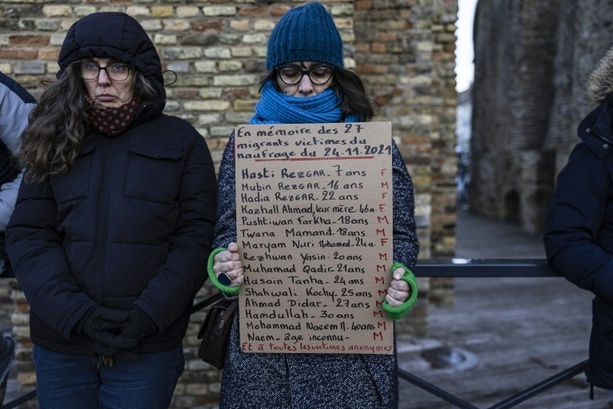 En mémoire des 27
migrants victimes du
naufrage du 24.11.2021
Hasti REZGAR_7 ans F
Mubin REZGAR_16 ans M
Hadia REZGAR_22 ans F
Kazhall Ahmad, leur mère_46 a. F
Pushtiwan Farkha_18ans M
Twana Mamand_18ans M
Maryam Nuri Mohamed_24a. F
Rezhwan Yasin_20ans M
Muhamad Qadir_21ans M
Husain Tanha_24ans M
Shahwali Kochy_25ans M
Ahmad Didar_27ans M
Hamdullah_30ans M
Mohammad Naeem M. 40ans M
Naem_âge inconnu_ M
Et à toutes les victimes anonymes